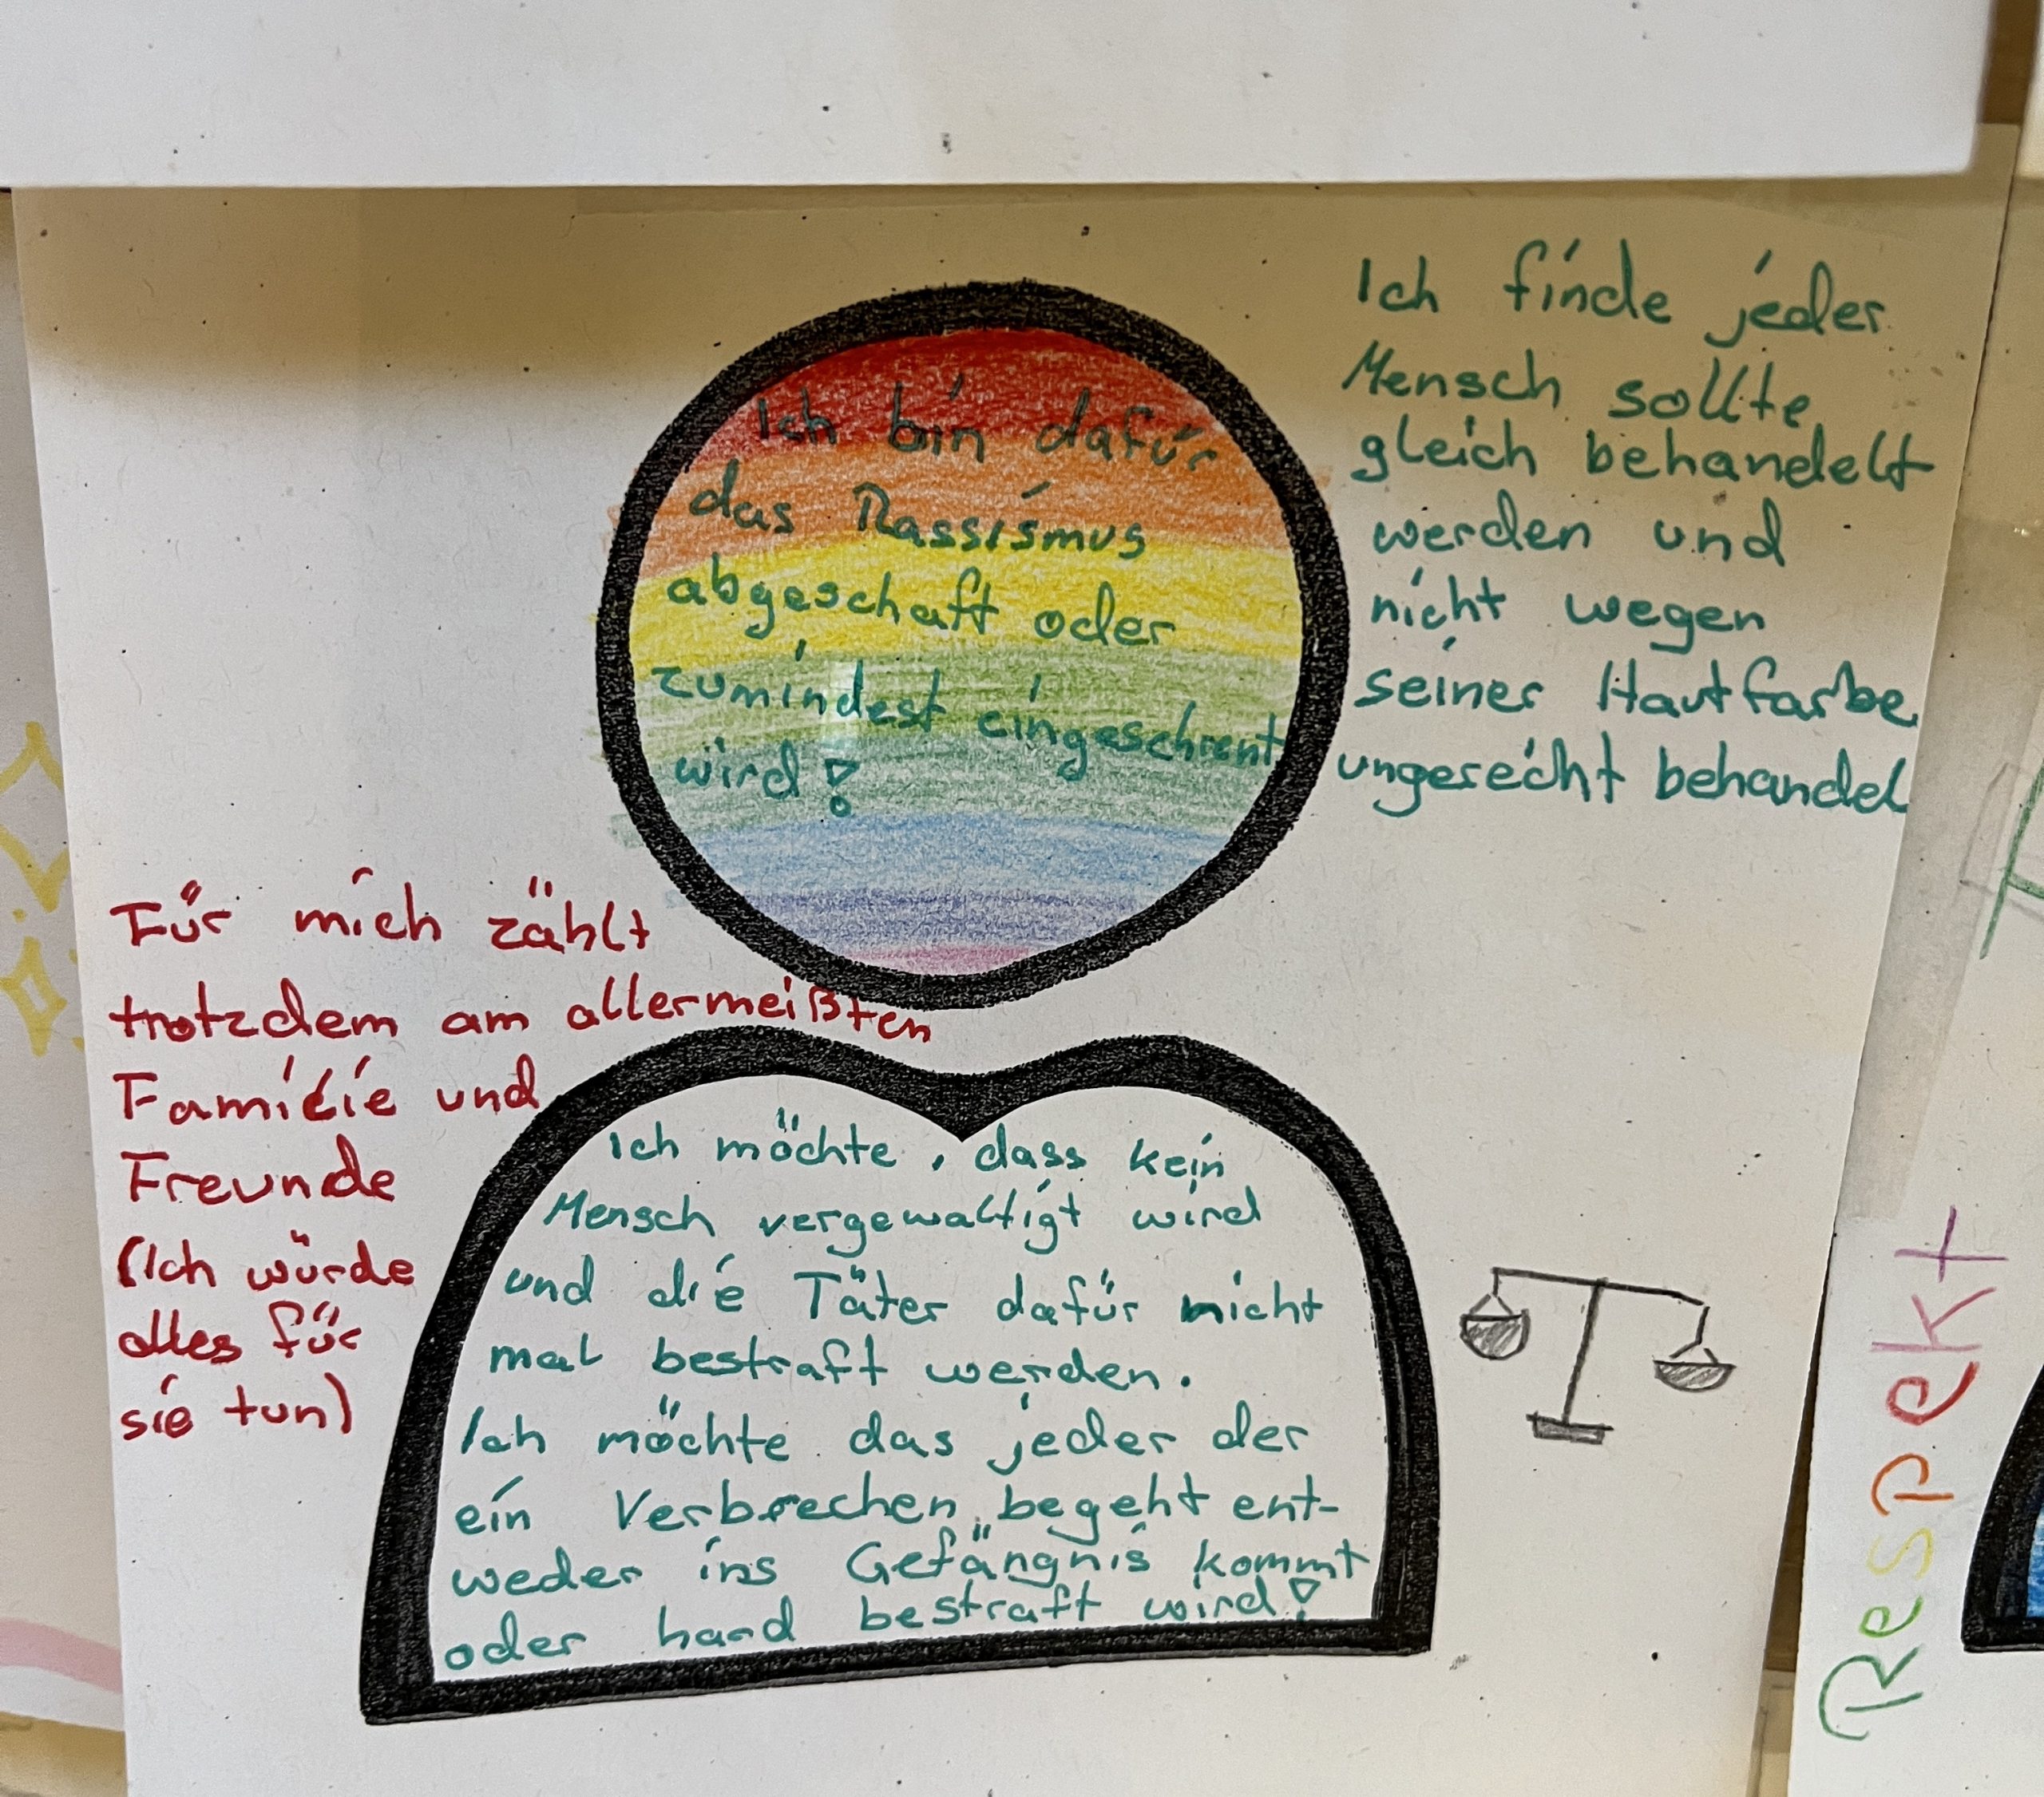 Ich bin dafür
das Rassismus
abgeschaft oder
zumindest eingeschrent
wird!
Ich finde jeder
Mensch sollte
gleich behandelt
werden und
nicht wegen
seiner Hautfarbe
ungerecht behandel
Für mich zählt
trotzdem am allermeißten
Familie und
Freunde
(Ich würde
alles für
sie tun)
Ich möchte, dass kein
Mensch vergewaltigt wird
und die Täter dafür nicht
mal bestraft werden.
Ich möchte das jeder der
ein Verbrechen begeht ent-
weder ins Gefängnis kommt
oder hard bestraft wird!
Respekt